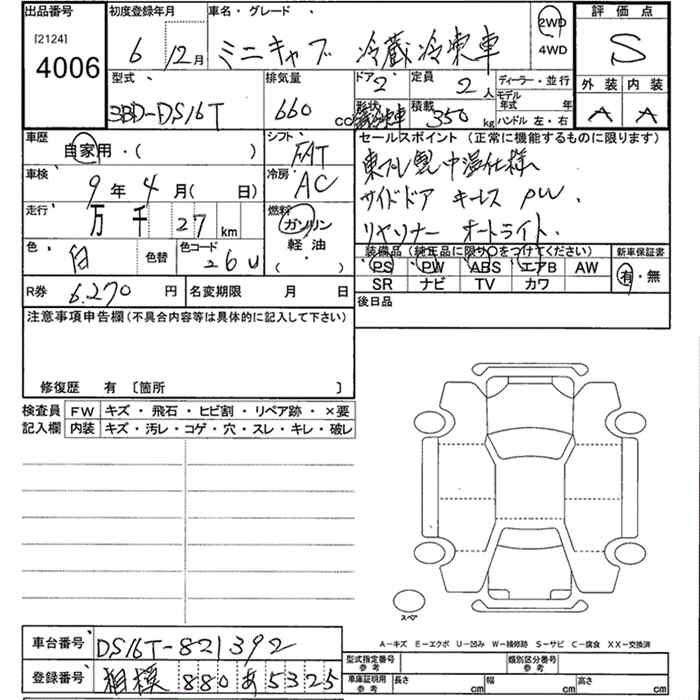 出品番号 初度登録年月 車名・グレード 評価点
[2124] 4006 6 12月 ミニキャブ 冷蔵冷凍車 2WD 4WD S
型式 排気量 ドア 定員 ディーラー・並行 外装 内装
3BD-DS16T 660 cc 2 2人 モデル年式 年 A A
形状 冷蔵冷凍車 積載 350 kg ハンドル 左・右
車歴 自家用・( ) シフト FAT セールスポイント(正常に機能するものに限ります)
車検 9年4月( 日) 冷房 AC 東プレ製中温仕様
走行 万千27km 燃料 ガソリン 軽油 ( ) サイドドア キーレス PW.
色 白 色替 色コード 26U リヤソナー オートライト.
装備品(純正品に限り○をつけてください) 新車保証書
PS PW ABS エアB AW 有・無
SR ナビ TV カワ
R券 6.270円 名変期限 月 日 後日品
注意事項申告欄(不具合内容等は具体的に記入して下さい)
修復歴 有 〔箇所 〕
検査員 FW キズ・飛石・ヒビ割・リペア跡・×要
記入欄 内装 キズ・汚レ・コゲ・穴・スレ・キレ・破レ
スペア
A-キズ E-エクボ U-凹み W-補修跡 S-サビ C-腐食 XX-交換済
車台番号 DS16T-821392 型式指定番号 参考 類別区分番号 参考
登録番号 相模 880 あ 5325 車庫証明用 参考 長さ cm 幅 cm 高さ cm